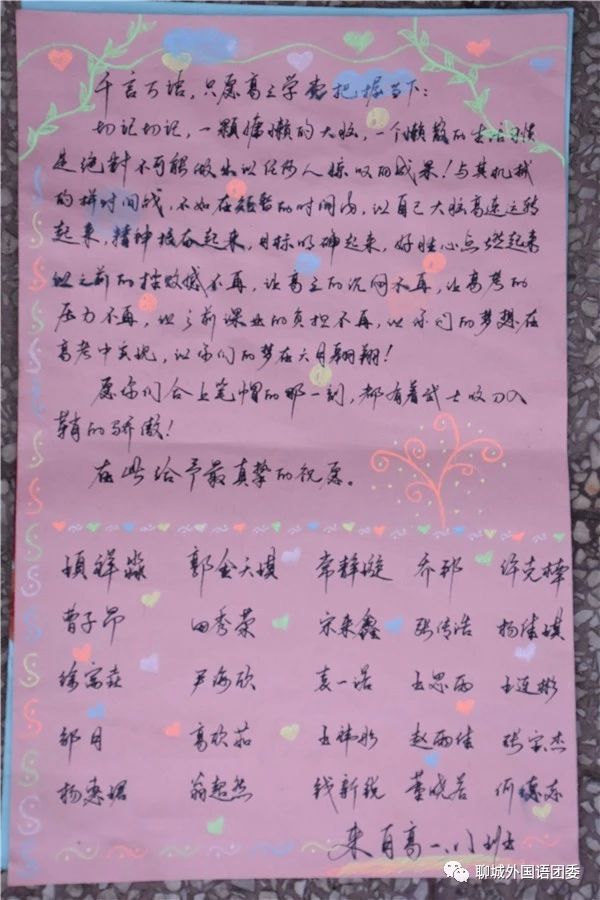 千言万语，只愿高三学长把握当下：
切记切记，一颗慵懒的大脑，一个懒散的生活习惯
是绝对不可能做出让任何人惊叹的成果！与其机械
的拼时间战，不如在短暂的时间内，让自己大脑高速运转
起来，精神振奋起来，目标明确起来，好胜心点燃起来
让之前的挫败感不再，让高三的沉闷不再，让高考的
压力不再，让之前课业的负担不再，让你们的梦想在
高考中实现，让你们的梦在六月翱翔！
愿你们合上笔帽的那一刻，都有着武士收刀入
鞘的骄傲！
在此给予最真挚的祝愿。
郭金天琪 常静璇 乔邦 许克棒
曹子昂 田秀荣 宋来鑫 张传浩 杨佳琪
徐富森 尹海欣 袁一诺 王思雨 王连彬
邹月 高欣茹 王祎彤 赵雨佳 张宗杰
杨惠珺 翁超然 钱新锐 董晓若
来自高一、八班
聊城外国语团委